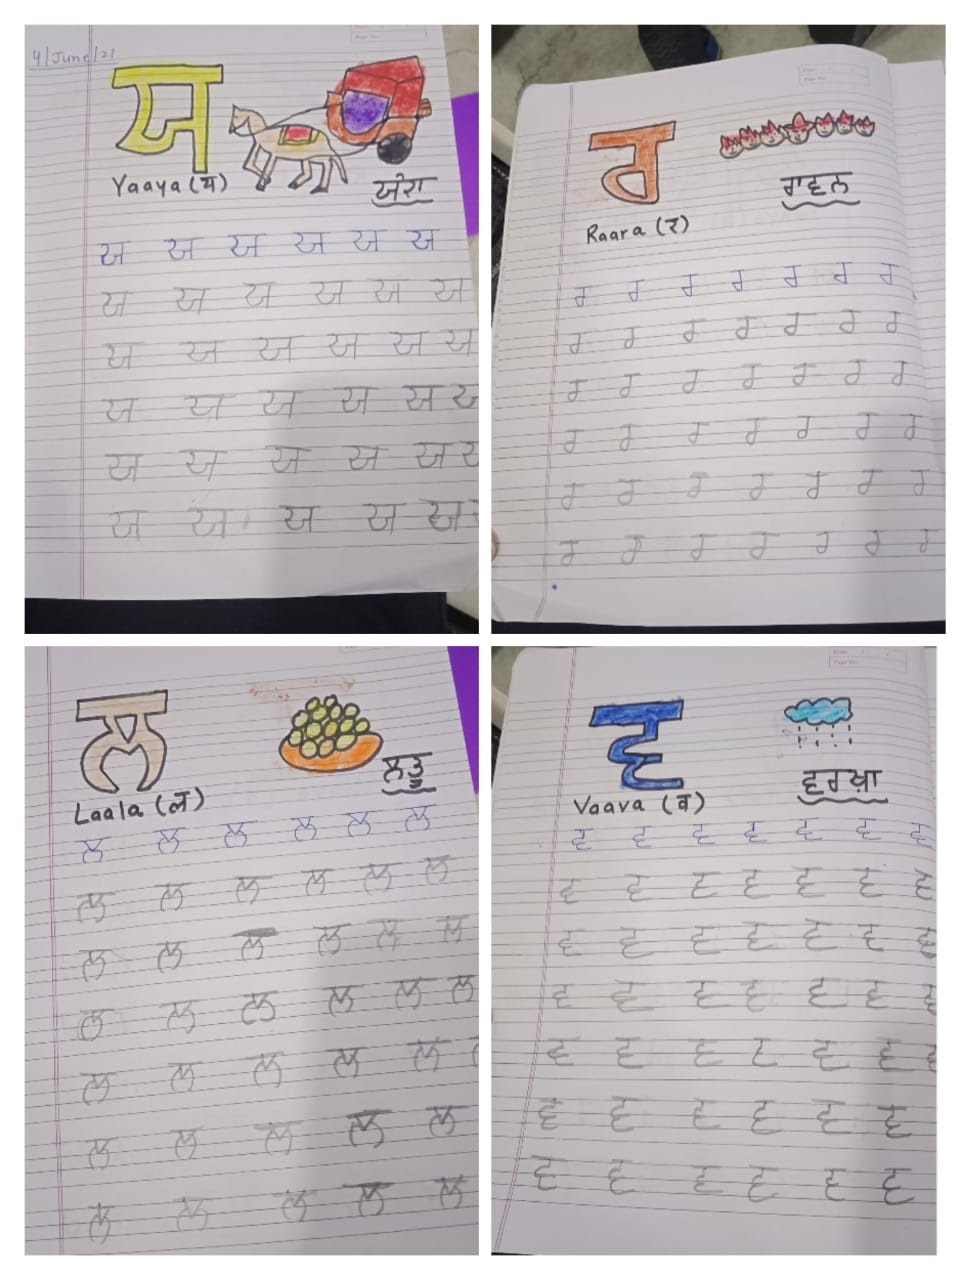 4/June/21
ਯ
Yaaya (य)
ਯ ਯ ਯ ਯ ਯ ਯ
ਯ ਯ ਯ ਯ ਯ ਯ
ਯ ਯ ਯ ਯ ਯ ਯ
ਯ ਯ ਯ ਯ ਯ ਯ
ਯ ਯ ਯ ਯ ਯ ਯ
ਯ ਯ ਯ ਯ ਯ
ਰ
ਰਾਵਨ
Raara (र)
ਰ ਰ ਰ ਰ ਰ ਰ ਰ
ਰ ਰ ਰ ਰ ਰ ਰ ਰ
ਰ ਰ ਰ ਰ ਰ ਰ ਰ
ਰ ਰ ਰ ਰ ਰ ਰ ਰ
ਰ ਰ ਰ ਰ ਰ ਰ ਰ
ਰ ਰ ਰ ਰ ਰ ਰ ਰ
ਲ
Laala (ल)
ਲ ਲ ਲ ਲ ਲ ਲ
ਲ ਲ ਲ ਲ ਲ ਲ
ਲ ਲ ਲ ਲ ਲ ਲ
ਲ ਲ ਲ ਲ ਲ ਲ
ਲ ਲ ਲ ਲ ਲ
ਲ ਲ ਲ ਲ ਲ
ਲ ਲ ਲ ਲ ਲ
ਵ
ਵਰਖਾ
Vaava (व)
ਵ ਵ ਵ ਵ ਵ ਵ ਵ
ਵ ਵ ਵ ਵ ਵ ਵ ਵ
ਵ ਵ ਵ ਵ ਵ ਵ ਵ
ਵ ਵ ਵ ਵ ਵ ਵ ਵ
ਵ ਵ ਵ ਵ ਵ ਵ ਵ
ਵ ਵ ਵ ਵ ਵ ਵ
ਵ ਵ ਵ ਵ ਵ ਵ